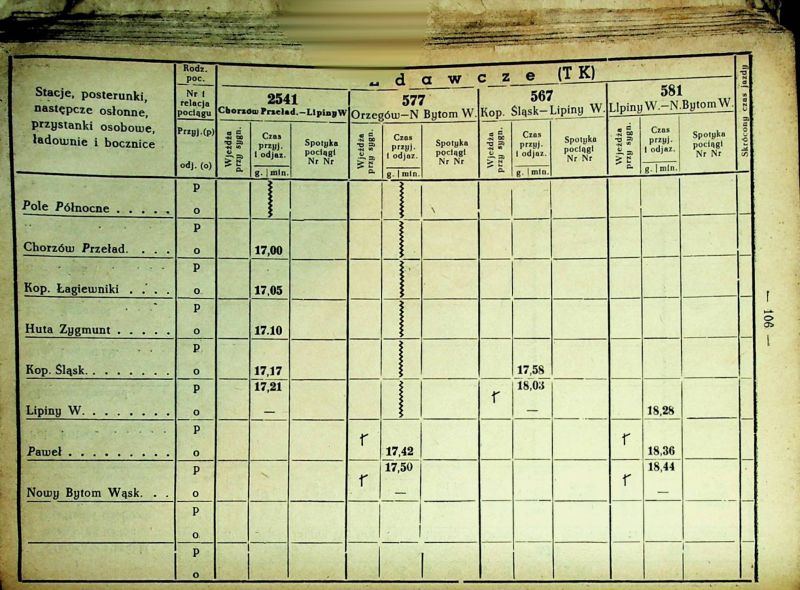 dawcze (TK)
Stacje, posterunki, następcze osłonne, przystanki osobowe, ładownie i bocznice
Rodz. poc.
Nr i relacja pociągu
Przyj.(p)
odj. (o)
2541
Chorzów Przeład.—Lipiny W
577
Orzegów—N Bytom W.
567
Kop. Śląsk—Lipiny W.
581
Lipiny W.—N.Bytom W.
Skrócony czas jazdy
Wjeżdża przy sygn. Czas przyj. i odjaz. Spotyka pociągi Nr Nr
g. | min.
Wjeżdża przy sygn. Czas przyj. i odjaz. Spotyka pociągi Nr Nr
g. | min.
Wjeżdża przy sygn. Czas przyj. i odjaz. Spotyka pociągi Nr Nr
g. | min.
Wjeżdża przy sygn. Czas przyj. i odjaz. Spotyka pociągi Nr Nr
g. | min.
p
Pole Północne . . . . . o
p
Chorzów Przeład. . . . o 17,00
p
Kop. Łagiewniki . . . . o 17,05
p
Huta Zygmunt . . . . . o 17.10
p
Kop. Śląsk. . . . . . . . o 17,17 17,58
p 17,21 18,03
Lipiny W. . . . . . . . o — — 18,28
p
Paweł . . . . . . . . . o 17,42 18,36
p 17,50 18,44
Nowy Bytom Wąsk. . . o — —
p
o
p
o
— 106 —